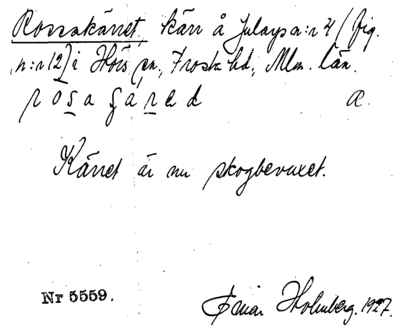 Rossakärret, kärr å Julaps n:r 4 (fig.
n:r 12) i Hörs sn., Frosta hd., Mlm. län.
rosagäred R.
Kärret är nu skogbevuxet.
Nr 5559.
Einar Holmberg. 1927.